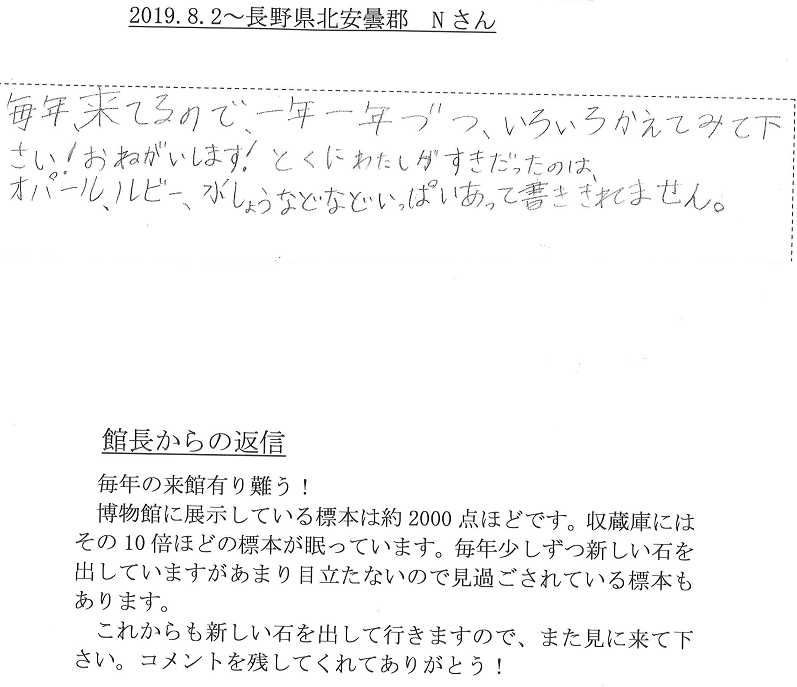 2019.8.2～長野県北安曇郡　Nさん
毎年、来てるので、一年一年づつ、いろいろかえてみて下
さい！おねがいします！とくにわたしがすきだったのは、
オパール、ルビー、水しょうなどなどいっぱいあって書ききれてません。
館長からの返信
毎年の来館有り難う！
博物館に展示している標本は約2000点ほどです。収蔵庫には
その10倍ほどの標本が眠っています。毎年少しずつ新しい石を
出していますがあまり目立たないので見過ごされている標本も
あります。
これからも新しい石を出して行きますので、また見に来て下
さい。コメントを残してくれてありがとう！